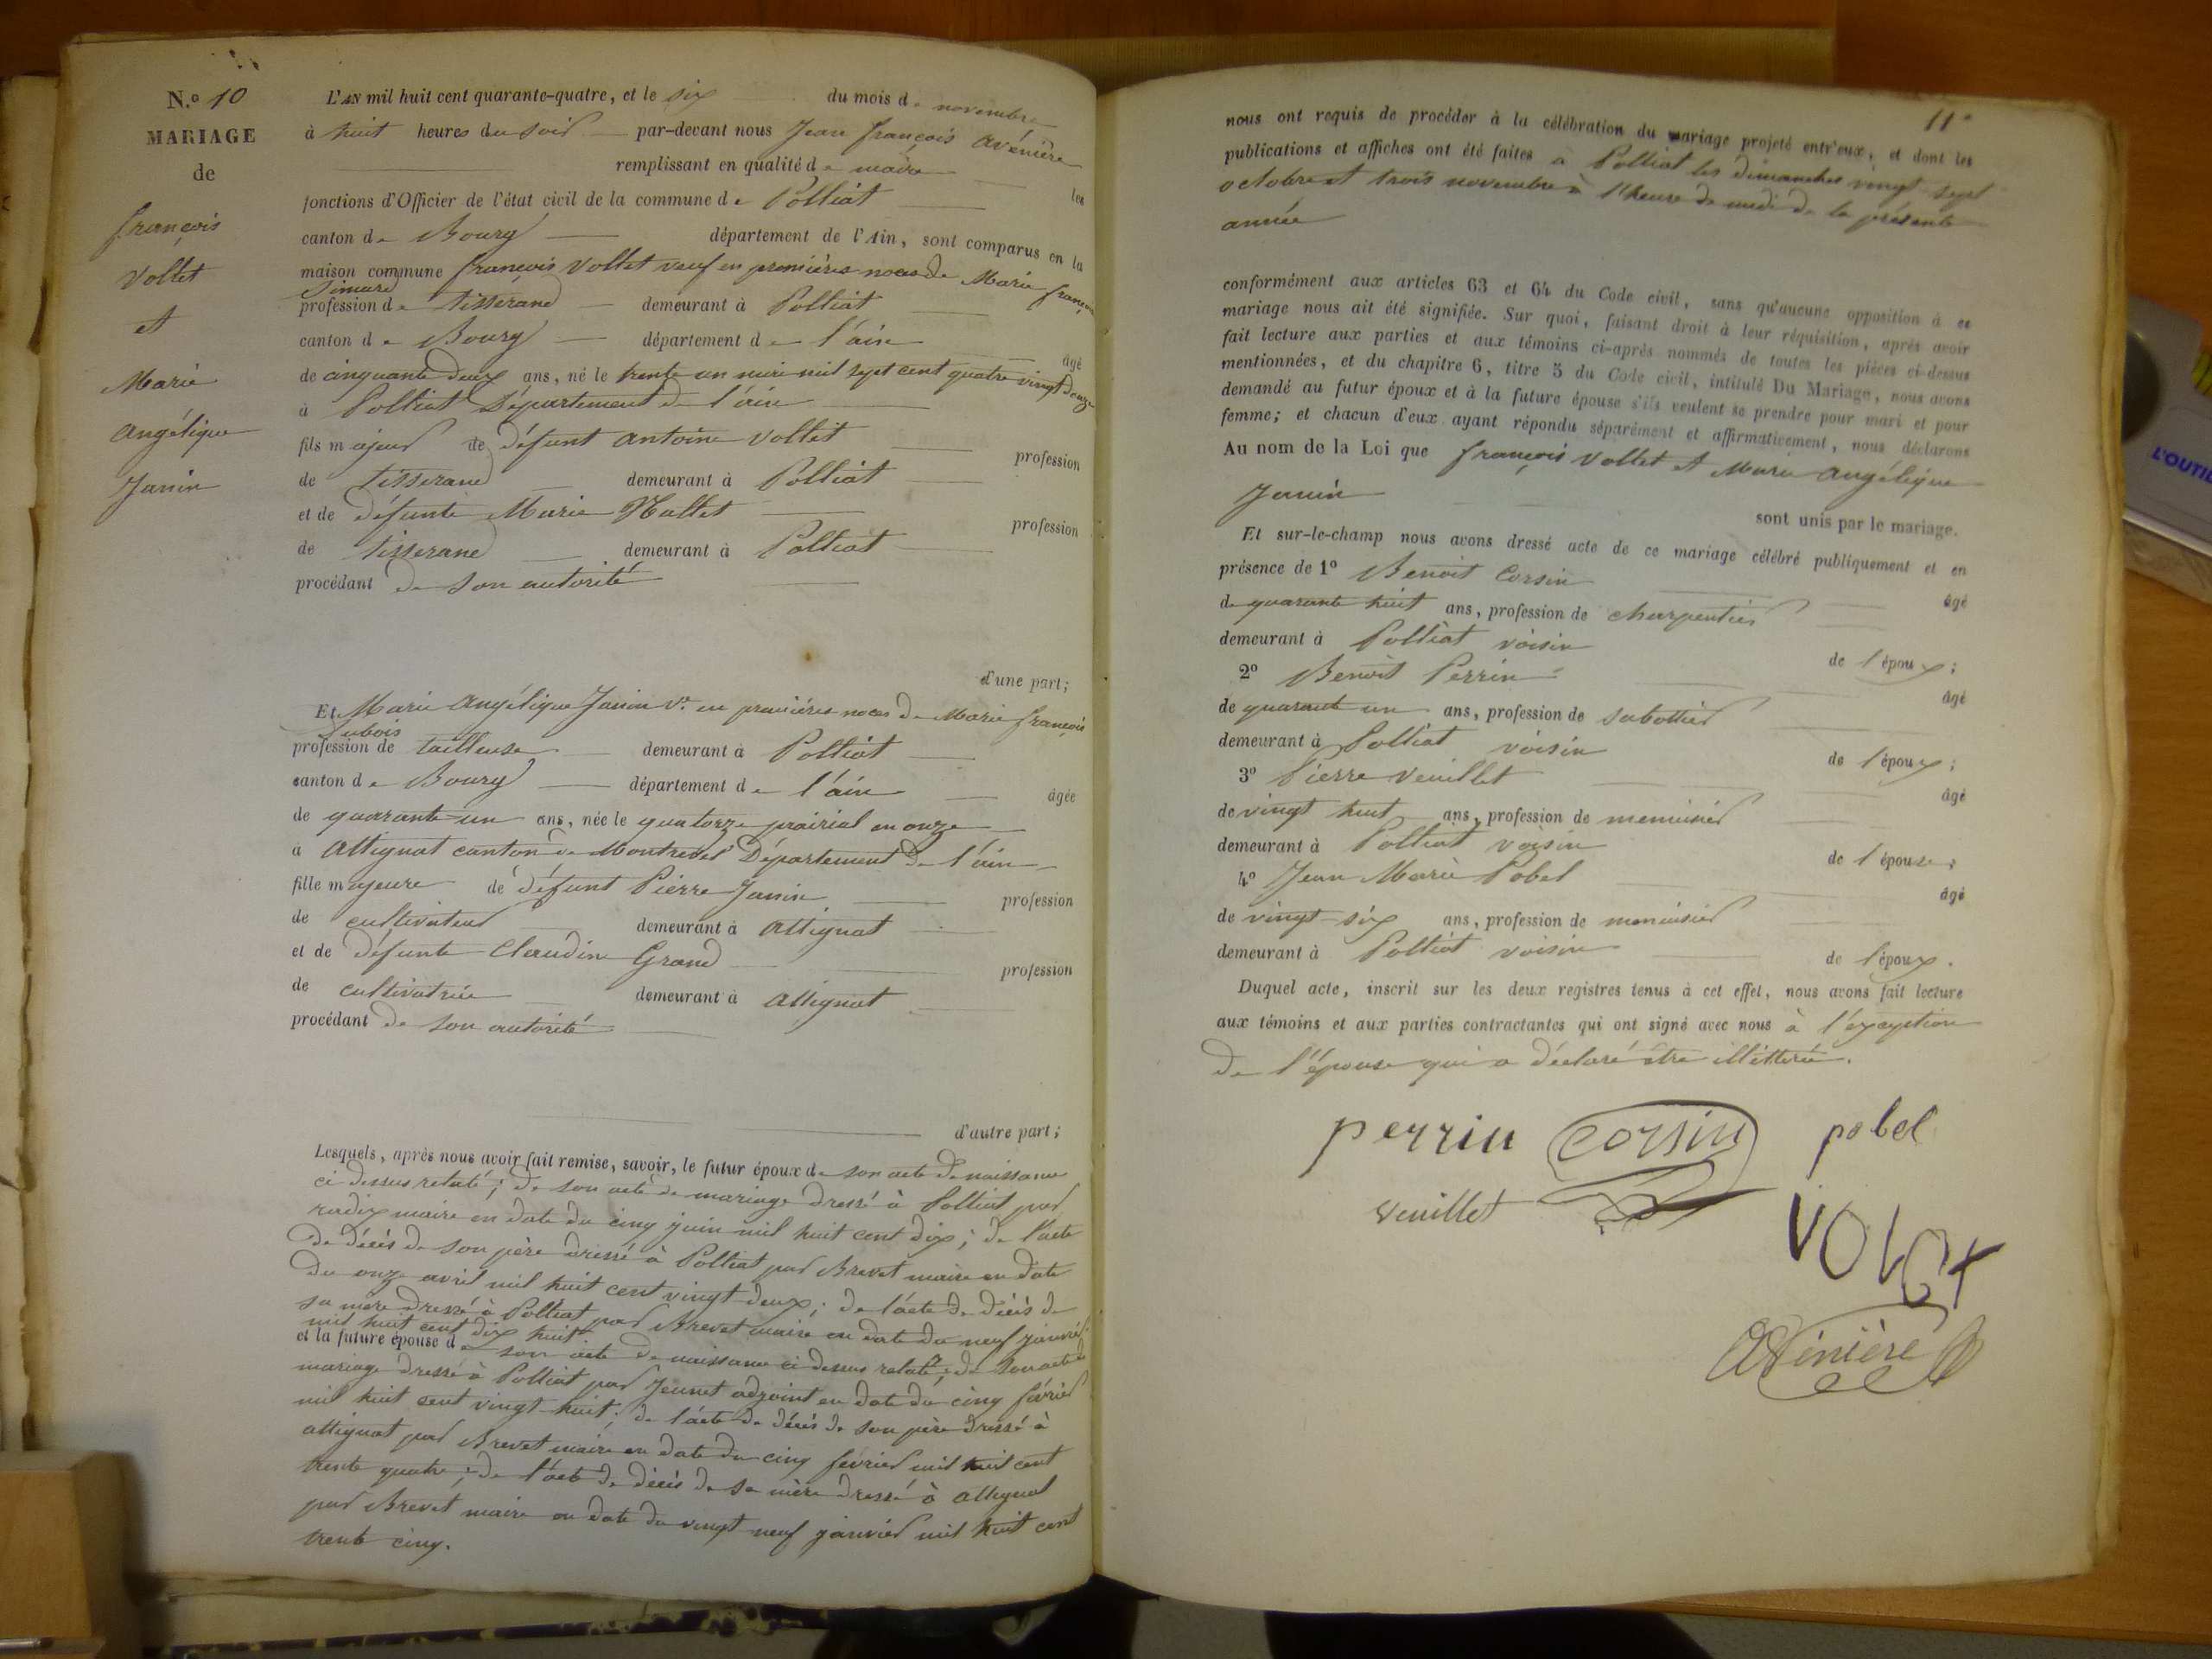 N.º 10
MARIAGE
de
françois
Vollet
et
Marie
angélique
Janin
L'AN mil huit cent quarante-quatre, et le six du mois de novembre
à huit heures du soir par-devant nous Jean françois avénière
remplissant en qualité de maire les
fonctions d'Officier de l'état civil de la commune de Polliat
canton de Bourg département de l'Ain, sont comparus en la
maison commune françois Vollet veuf en premières noces de Marie françoise
profession de tisserand demeurant à Polliat
canton de Bourg département de l'ain âgé
de cinquante deux ans, né le trente un mil sept cent quatre vingt douze
à Polliat Département de l'ain
fils majeur de défunt antoine Vollet profession
de tisserand demeurant à Polliat
et de défunte Marie profession
de tisserand demeurant à Polliat
procédant de son autorité
d'une part;
Et Marie angélique Janin Vᵉ en premières noces de Marie françois
Dubois
profession de tailleuse demeurant à Polliat
canton de Bourg département de l'ain âgée
de quarante-un ans, née le quatorze prairial an onze
à attignat canton de Montrevel Département de l'ain
fille majeure de défunt Pierre Janin profession
de cultivateur demeurant à attignat
et de défunte Claudine Grand profession
de cultivatrice demeurant à attignat
procédant de son autorité
d'autre part;
Lesquels, après nous avoir fait remise, savoir, le futur époux de son acte de naissance
ci dessus relaté; de son acte de mariage dressé à Polliat par
maire en date du cinq juin mil huit cent dix; de l'acte
de décès de son père dressé à Polliat par Brevet maire en date
du onze avril mil huit cent vingt-deux; de l'acte de décès de
sa mère dressé à Polliat par Brevet maire en date du neuf janvier
mil huit cent dix huit
et la future épouse de son acte de naissance ci dessus relaté; de son acte de
mariage dressé à Polliat par Jeunet adjoint en date du cinq février
mil huit cent vingt-huit; de l'acte de décès de son père dressé à
attignat par Brevet maire en date du cinq février mil huit cent
trente quatre; de l'acte de décès de sa mère dressé à attignat
par Brevet maire en date du vingt neuf janvier mil huit cent
trente cinq.
11
nous ont requis de procéder à la célébration du mariage projeté entr'eux, et dont les
publications et affiches ont été faites à Polliat les dimanches vingt sept
octobre et trois novembre à l'heure de midi de la présente
année
conformément aux articles 63 et 64 du Code civil, sans qu'aucune opposition à ce
mariage nous ait été signifiée. Sur quoi, faisant droit à leur réquisition, après avoir
fait lecture aux parties et aux témoins ci-après nommés de toutes les pièces ci-dessus
mentionnées, et du chapitre 6, titre 5 du Code civil, intitulé Du Mariage, nous avons
demandé au futur époux et à la future épouse s'ils veulent se prendre pour mari et pour
femme; et chacun d'eux ayant répondu séparément et affirmativement, nous déclarons
Au nom de la Loi que françois Vollet et Marie angélique
Janin
sont unis par le mariage.
Et sur-le-champ nous avons dressé acte de ce mariage célébré publiquement et en
présence de 1º Benoit Corsin âgé
de quarante huit ans, profession de charpentier
demeurant à Polliat voisin de l'époux;
2º Benoit Perrin âgé
de quarant un ans, profession de sabottier
demeurant à Polliat voisin de l'époux;
3º Pierre Veuillet âgé
de vingt huit ans, profession de menuisier
demeurant à Polliat voisin de l'épouse;
4º Jean Marie Pobel âgé
de vingt-six ans, profession de menuisier
demeurant à Polliat voisin de l'époux.
Duquel acte, inscrit sur les deux registres tenus à cet effet, nous avons fait lecture
aux témoins et aux parties contractantes qui ont signé avec nous à l'exception
de l'épouse qui a déclaré être illétterée.
perrin corsin pobel
veuillet
VOLET
Avénière
L'OUTIL